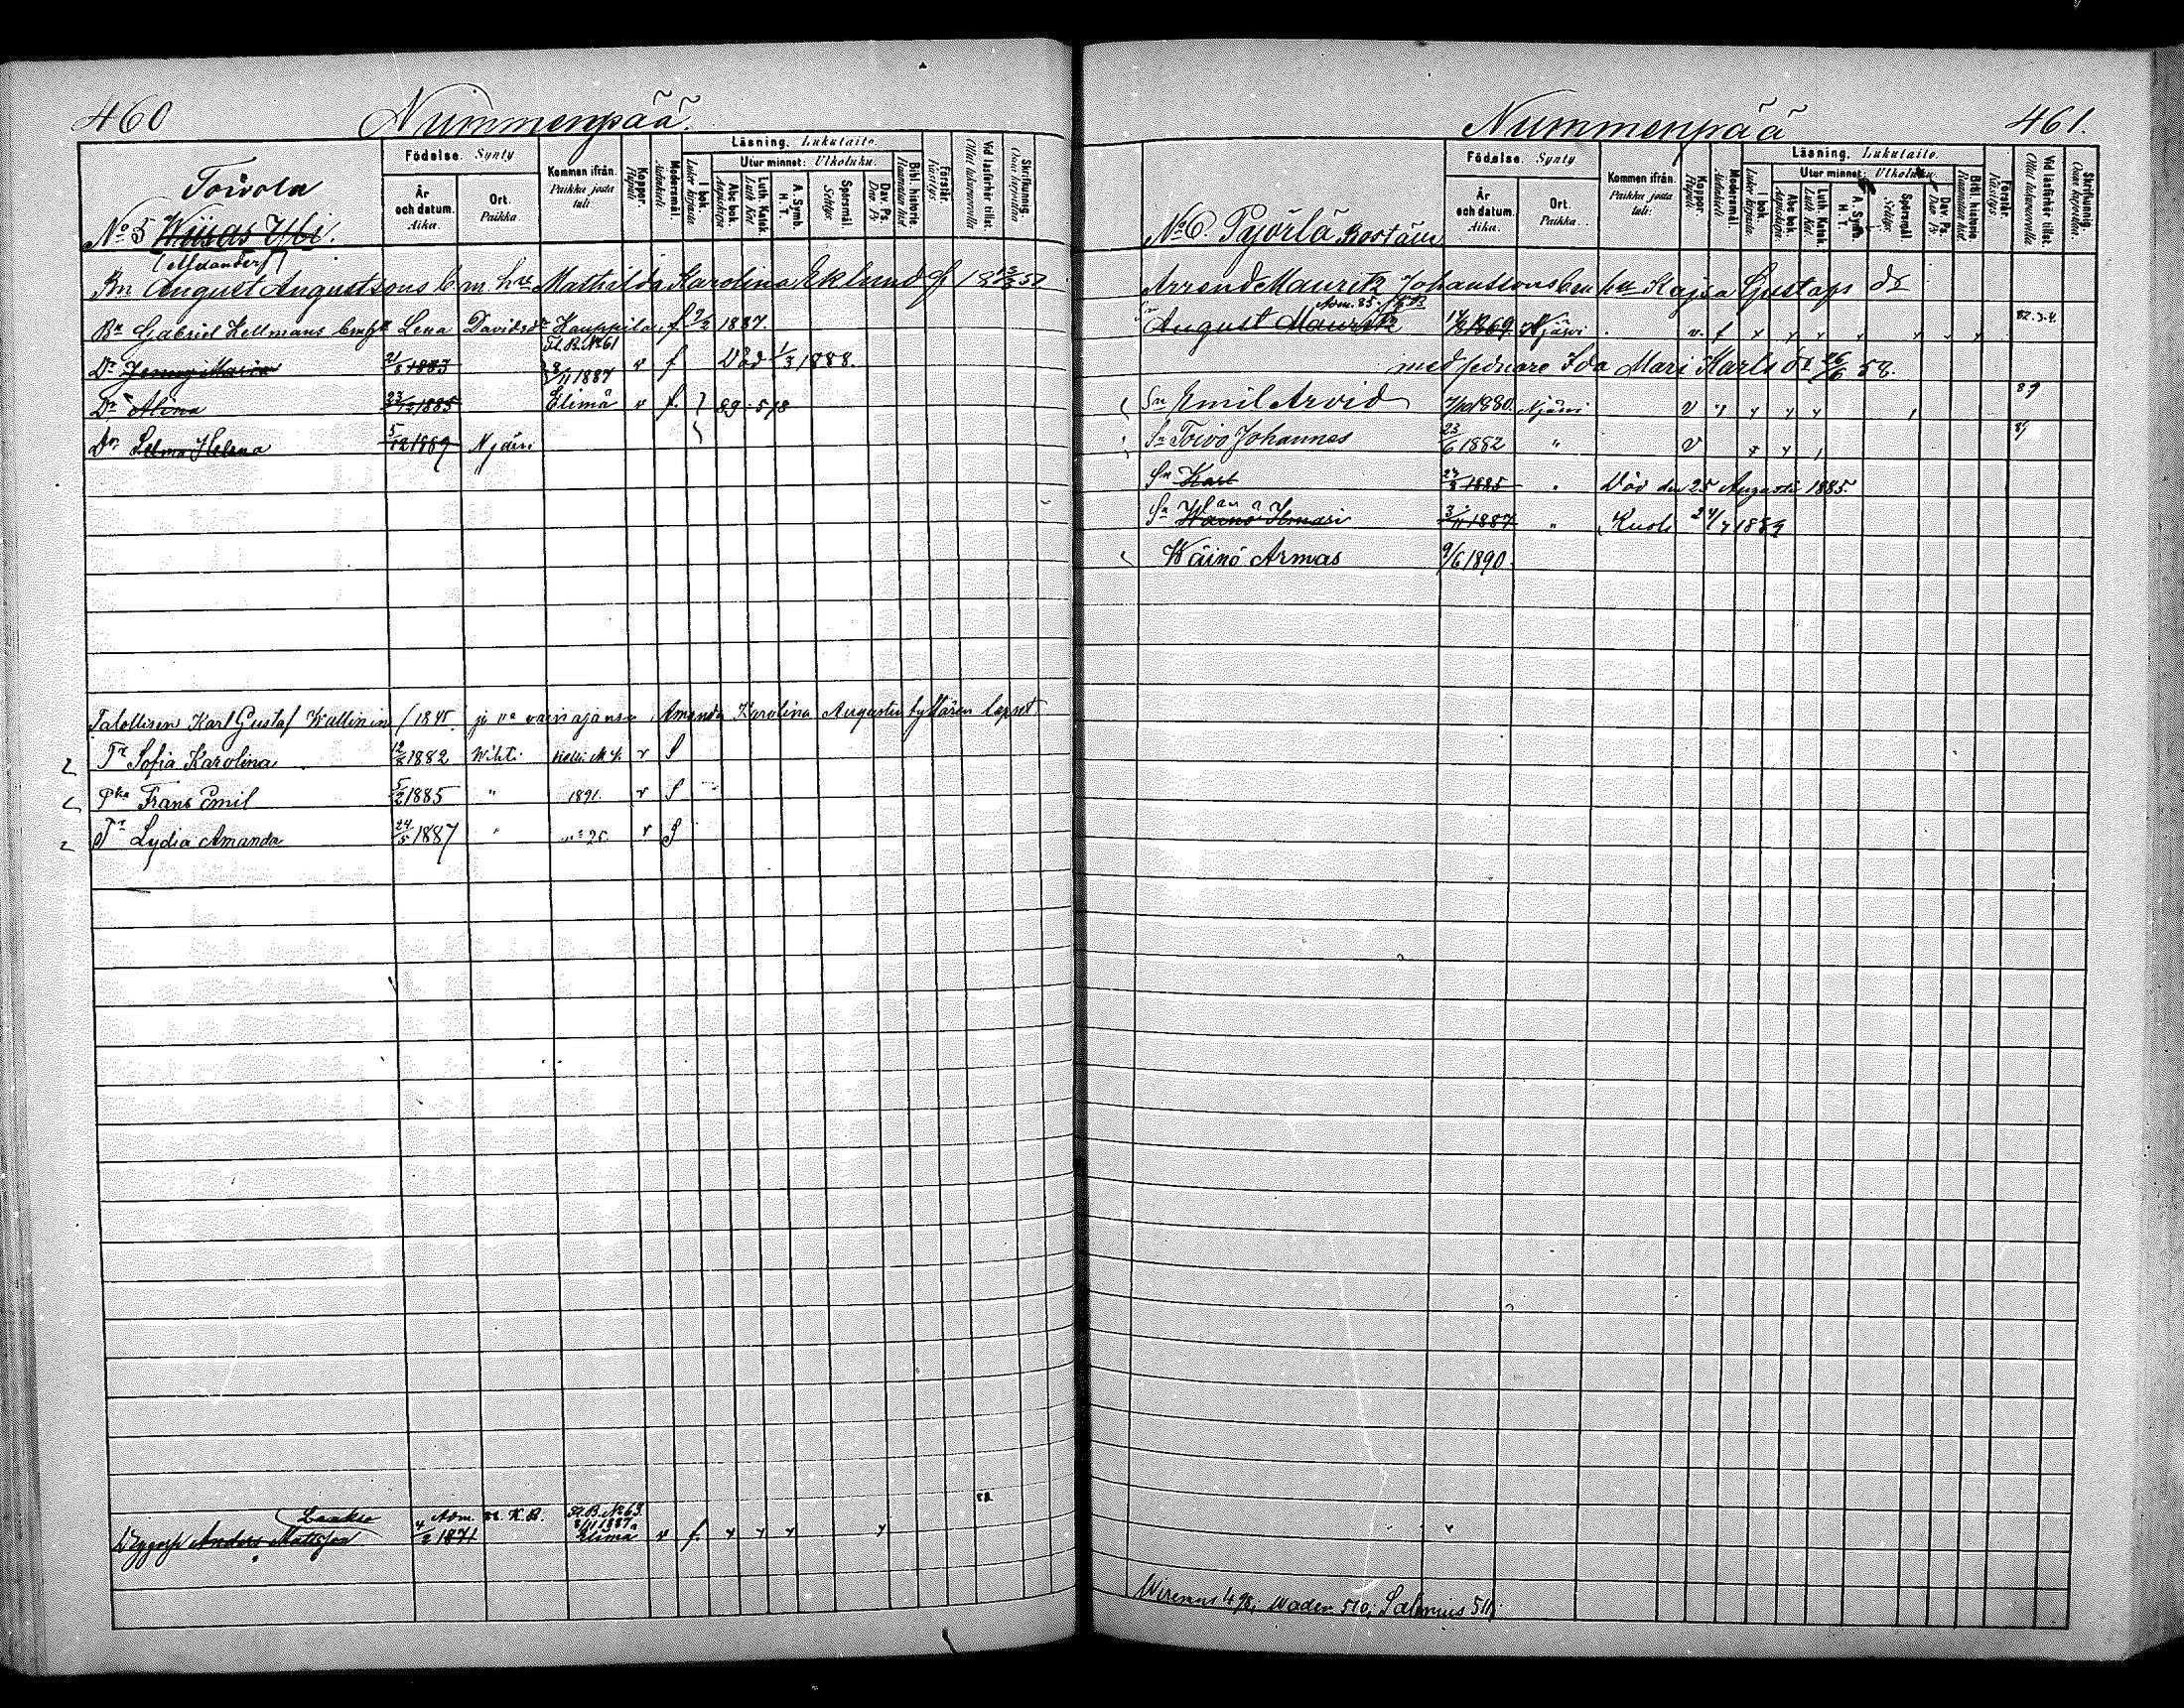 460 Nummenpää.
Födelse. Synty
År och datum. Aika.
Ort. Paikka.
Kommen ifrån. Paikka josta tuli.
Koppor. Rupuli
Modersmål. Äidinkieli
Läsning. Lukutaito.
I bok. Lukee kirjasta
Utur minnet: Ulkoluku.
Abc bok. Aapiskirja
Luth. Katek. Luth Kat.
A. Symb. H. T.
Spörsmål. Selitys.
Dav. Ps. Dav. Ps.
Bibl. historie. Raamatun hist.
Förstår. Käsitys.
Vid läsförhör tillst. Ollut lukuvuorolla
Skrifkunnig. Osaa kirjoittaa
Toivola
No 5 Wiisas Ybi.
(Alexanders)
Bn August Augustsons b m hru Mathilda Karolina Eklund f 18 52
Bn Gabriel Hellmans Lena Davidsdr Hauppila f 9/3 1887.
Fl. B. No 61
Dr Jenny Maria 21/8 1883 8/11 1887 v f Död 1/3 1888.
Dr Alina 23/12 1885 Elimä v f. 89 5/8
Dr Selma Helena 5/12 1889 Njärvi
Talollisen Karl Gustaf Wallinin (1845 ja vaimo vainajansa Amanda Karolina Augustin tyttären lapset
Tr Sofia Karolina 12/8 1882 Wihti v S
Pka Frans Emil 5/2 1885 " 1891. v S
Tr Lydia Amanda 24/5 1887 " 25 v S
Laakso Adm. K. B. Fl. B. No 63 88
Anders Mattsson 4/2 1871 8/11 1887 Elimä v f.
Nummenpää 461.
Födelse. Synty
År och datum. Aika.
Ort. Paikka.
Kommen ifrån. Paikka josta tuli:
Koppor. Rupuli
Modersmål. Äidinkieli
Läsning. Lukutaito.
I bok. Lukee kirjasta
Utur minnet: Ulkoluku.
Abc bok. Aapiskirja
Luth. Katek. Luth Kat.
A. Symb. H. T.
Spörsmål. Selitys.
Dav. Ps. Dav. Ps.
Bibl. historie. Raamatun hist.
Förstår. Käsitys.
Vid läsförhör tillst. Ollut lukuvuorolla
Skrifkunnig. Osaa kirjoittaa.
No 6. Pyörlä
Arrend Mauritz Johanssons hu Kajsa Gustafs dr
Adm. 85.
Sn August Mauritz 1869 Njärvi v. f 82.3.4.
med Ida Mari Karls dr 26/6 58.
Sn Emil Arvid 7/10 1880. Njärvi v 89
Sn Toivo Johannes 23/6 1882 " v 89
Sn Karl 1885 " Död den 25 Augusti 1885.
Sn Wäinö Ilmari 3/11 1887 " Kuoli 24/7 1889
Wäinö Armas 9/6 1890.
Wirenius 498; Waden 510; Salenius 511;